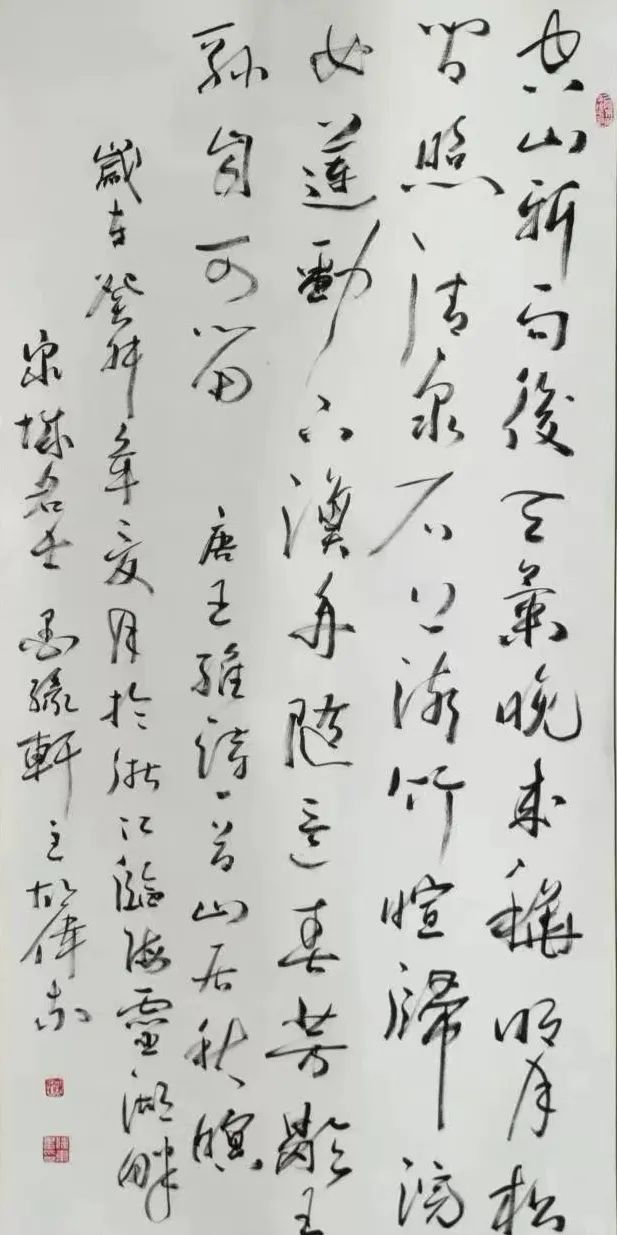 空山新雨後天氣晚來穐明月松
間照清泉石上流竹喧歸浣
女蓮動下漁舟隨意春芳歇王
孫自可留 唐王維詩一首山居秋暝
歲在癸卯年夏月於浙江臨海靈湖畔
泉城名士墨緣軒主